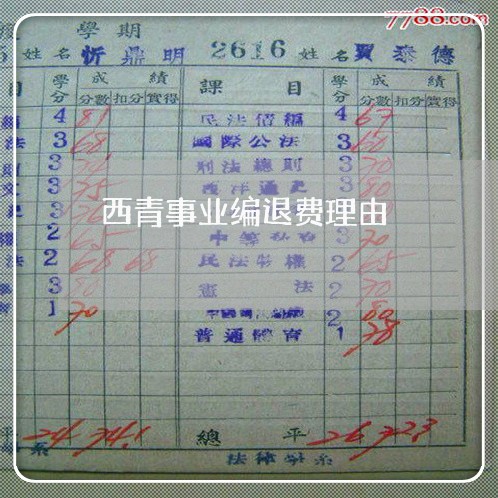 7788.com
學期
姓名 忻鼎明 2616 姓名 賈泰德
目 學分 成績 課目 學分 成績
分數 扣分 實得 分數 扣分 實得
4 81 民法債編 4 67
法 3 68 國際公法 3 60
3 刑法總則 3 70
文 3 75 西洋通史 3 80
西青事业编退费理由
2 65 3 70
法 2 68 68 民法物權 2 65
3 80 憲法 2 70
1 70 2 80
普通體育 1 78
24 74.1 總平 26 72.3
系 法律學系